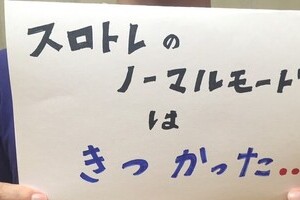 スロトレの
ノーマルモード
は
きつかった..